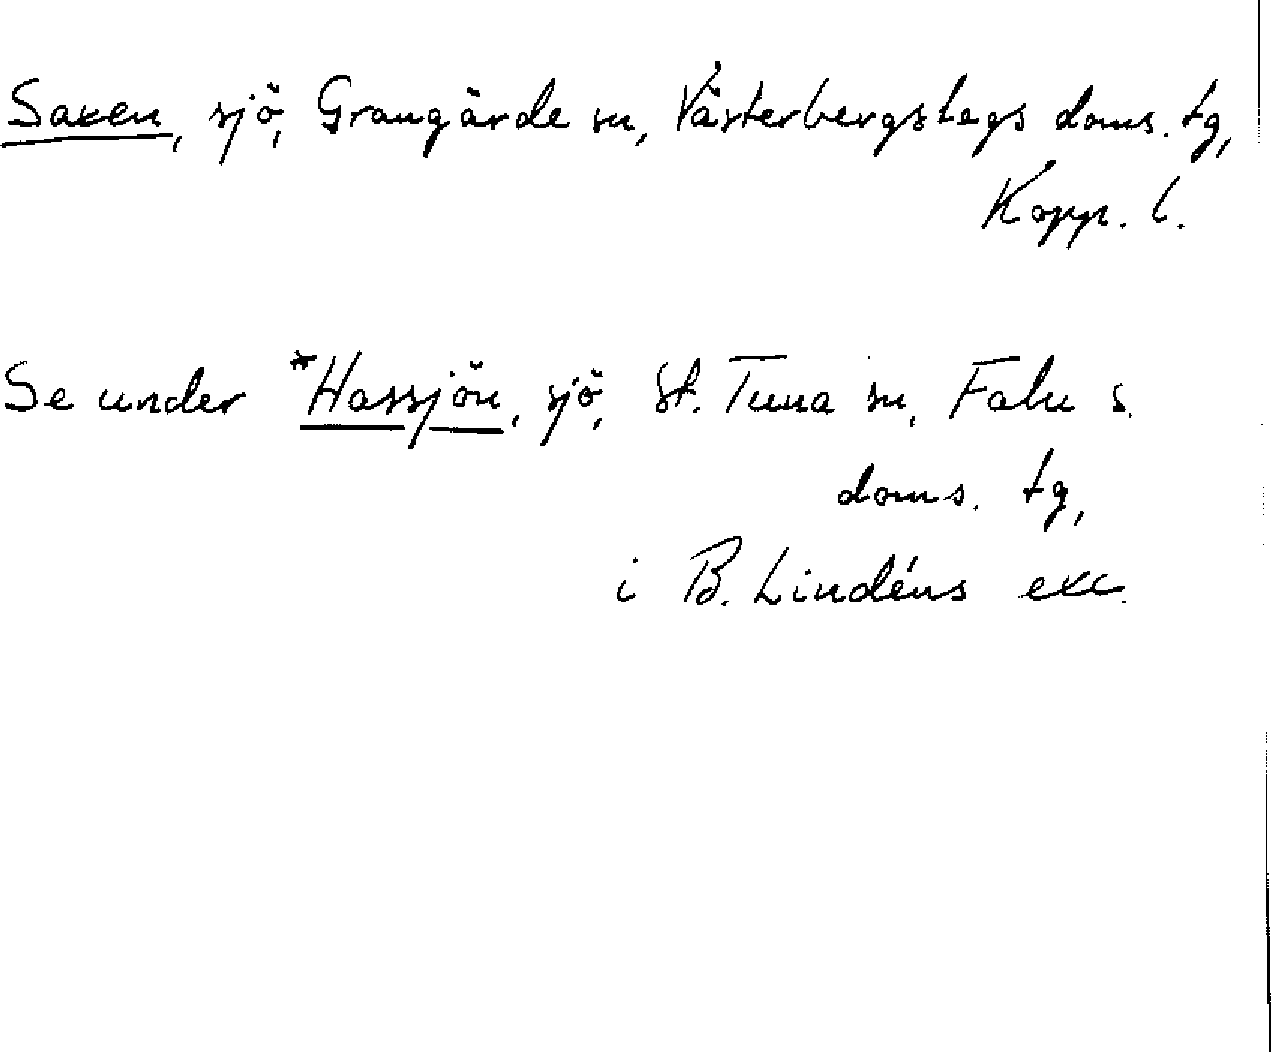 Saxen, sjö, Grangärde sn, Västerbergslags doms. tg,
Kopp. l.
Se under *Hassjön, sjö, St. Tuna sn, Falu s.
doms. tg,
i B. Lindéns exc.